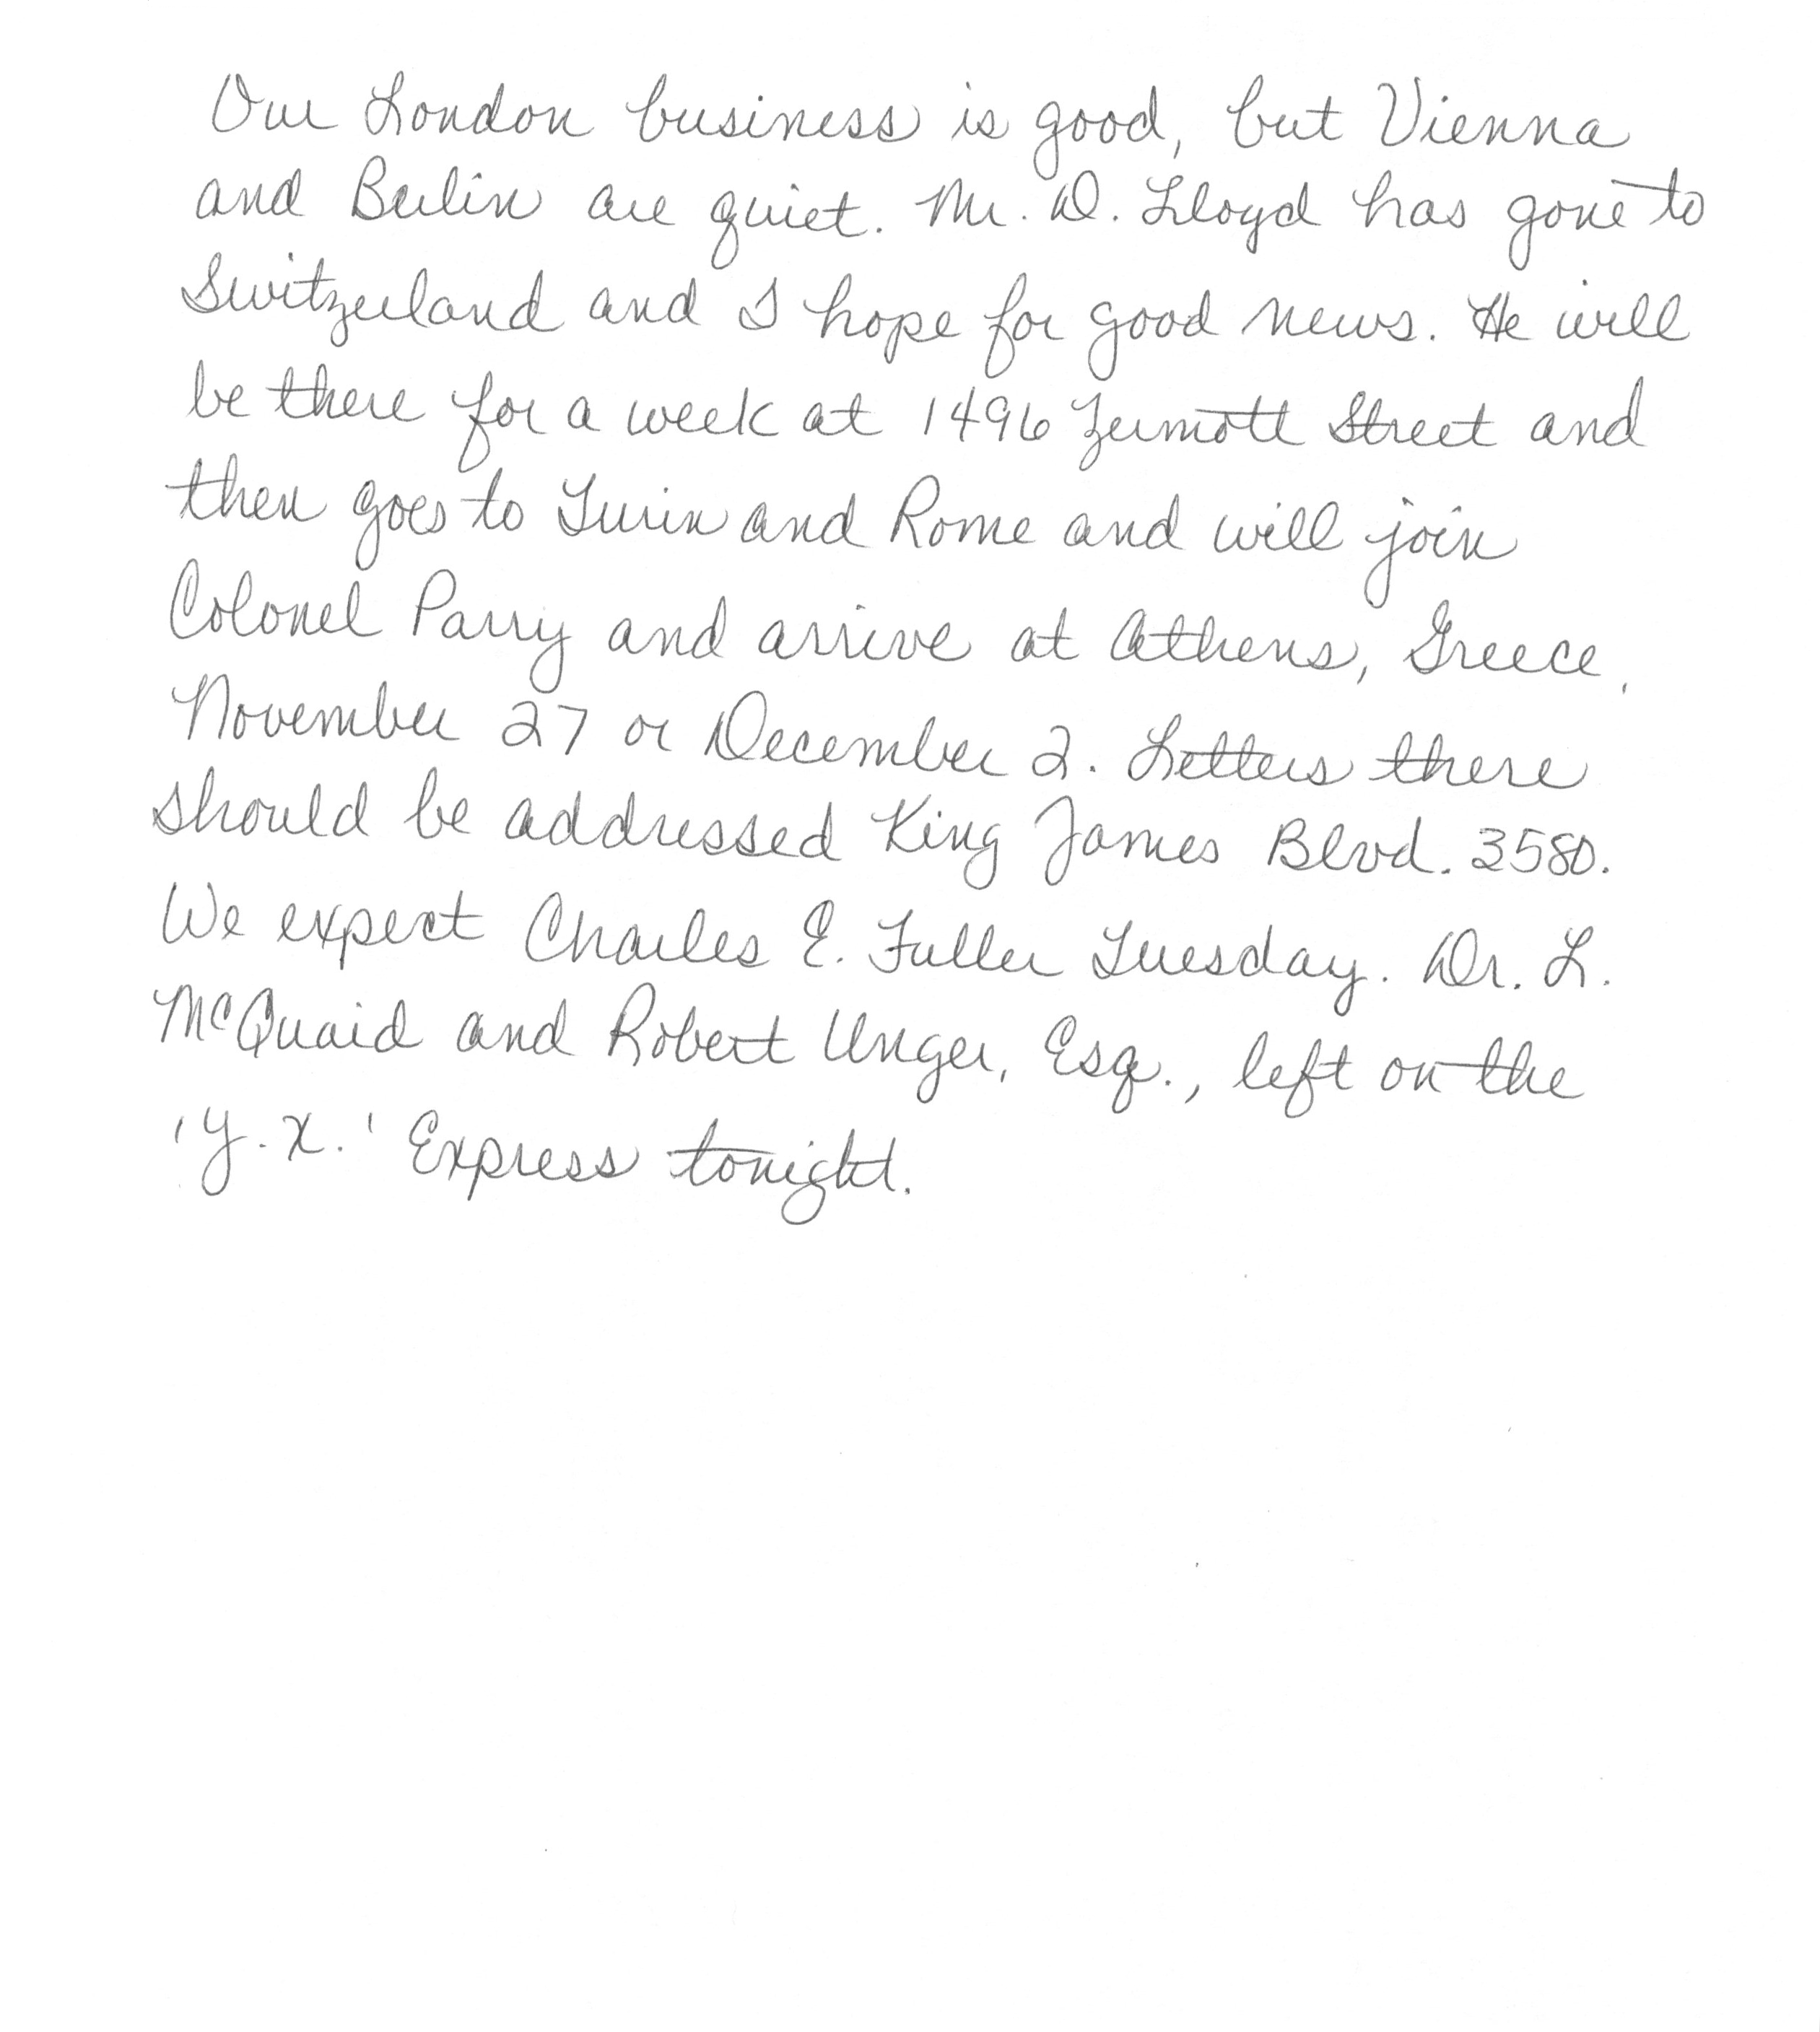 Our London business is good, but Vienna
and Berlin are quiet. Mr. D. Lloyd has gone to
Switzerland and I hope for good news. He will
be there for a week at 1496 Zermott Street and
then goes to Turin and Rome and will join
Colonel Parry and arrive at Athens, Greece,
November 27 or December 2. Letters there
should be addressed King James Blvd. 3580.
We expect Charles E. Fuller Tuesday. Dr. L.
McQuaid and Robert Unger, Esq., left on the
'Y.X.' Express tonight.